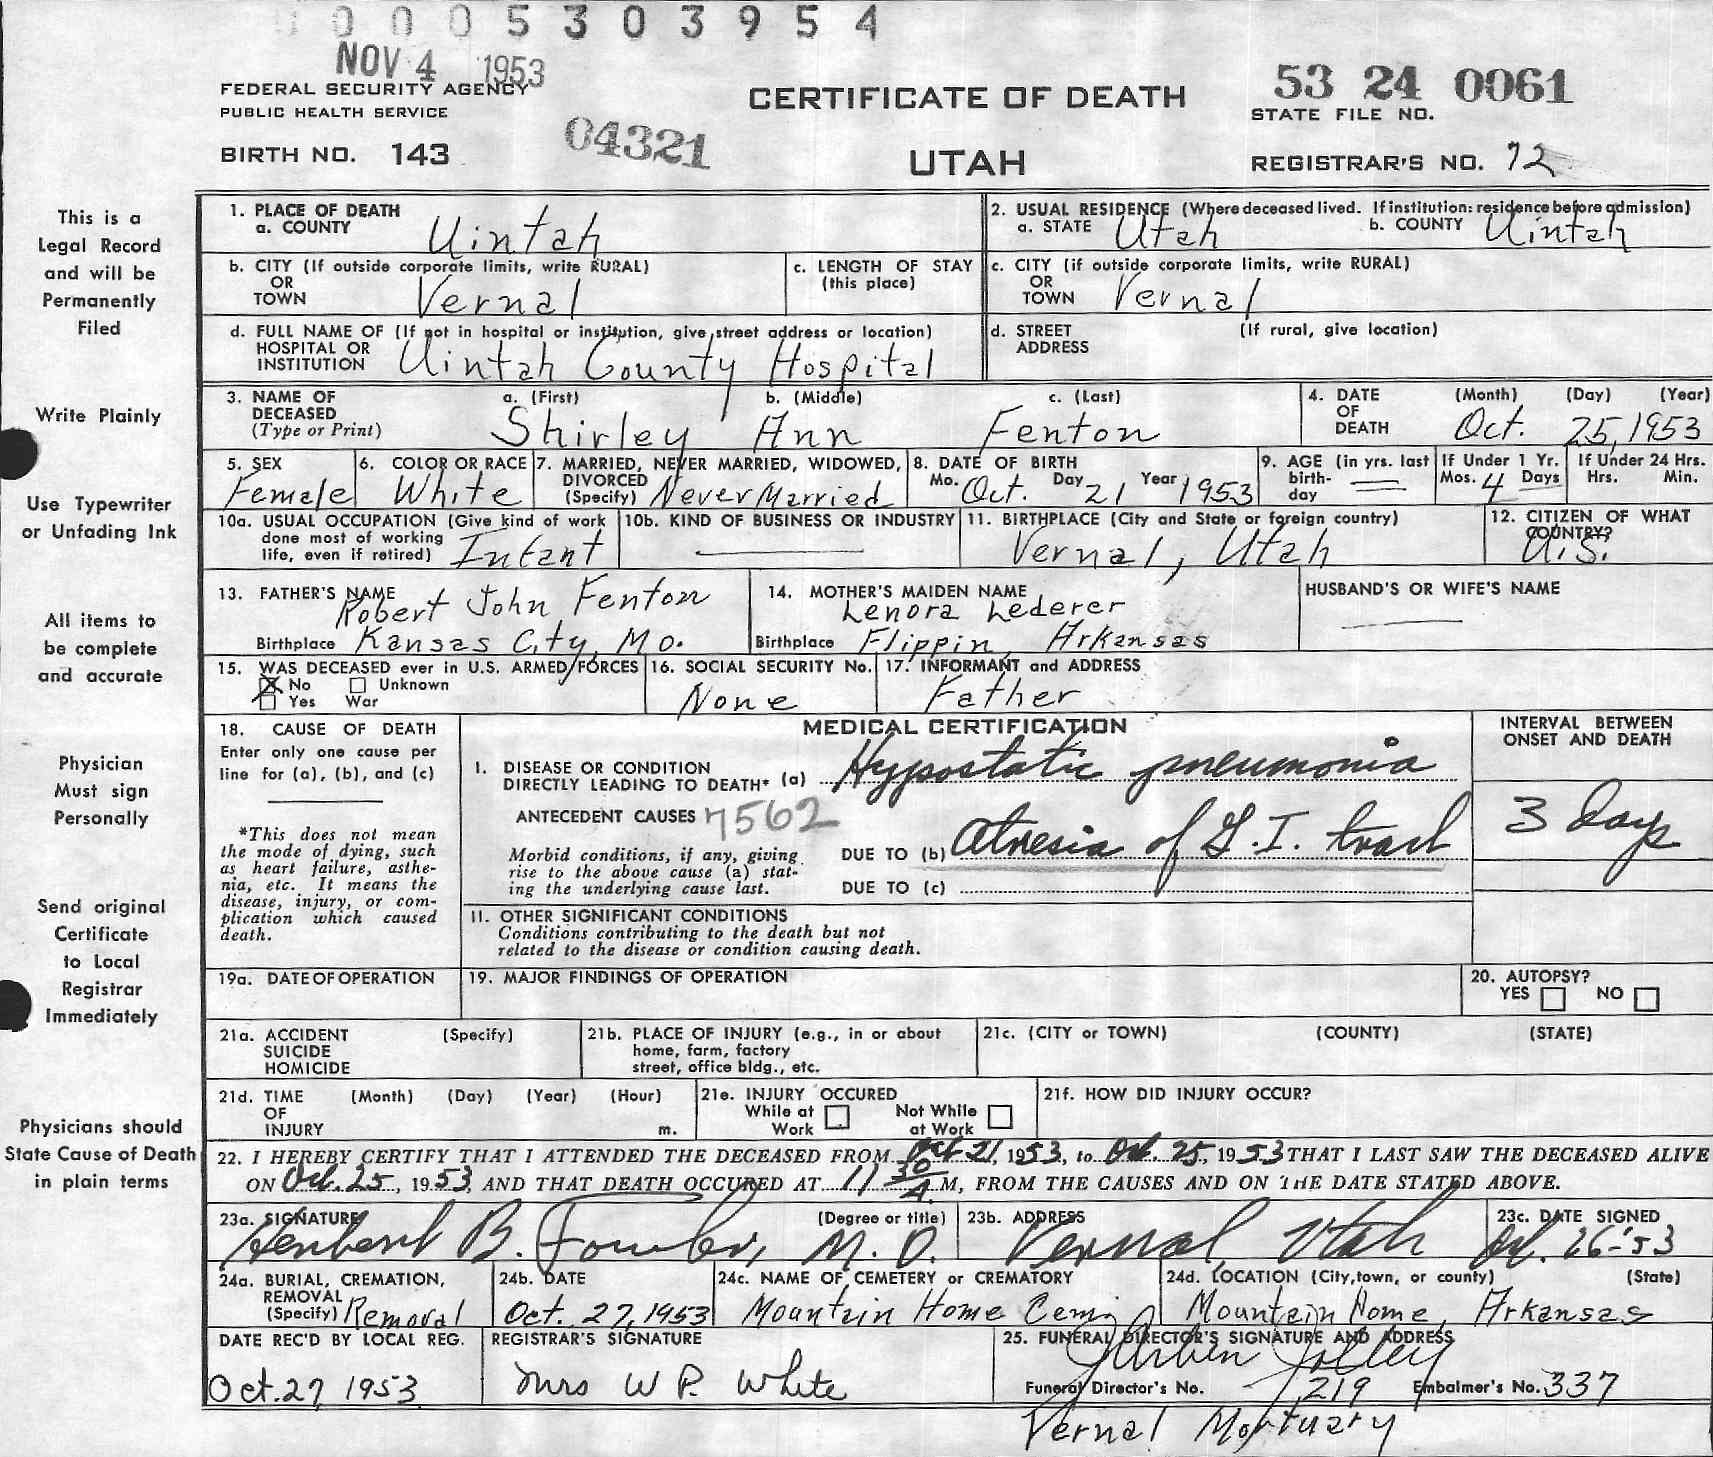 0 0 0 5 3 0 3 9 5 4
NOV 4 1953
FEDERAL SECURITY AGENCY
PUBLIC HEALTH SERVICE
BIRTH NO. 143
04321
CERTIFICATE OF DEATH
UTAH
53 24 0061
STATE FILE NO.
REGISTRAR'S NO. 72
This is a
Legal Record
and will be
Permanently
Filed
Write Plainly
Use Typewriter
or Unfading Ink
All items to
be complete
and accurate
Physician
Must sign
Personally
Send original
Certificate
to Local
Registrar
Immediately
Physicians should
State Cause of Death
in plain terms
1. PLACE OF DEATH
a. COUNTY Uintah
2. USUAL RESIDENCE (Where deceased lived. If institution: residence before admission)
a. STATE Utah b. COUNTY Uintah
b. CITY (If outside corporate limits, write RURAL)
OR
TOWN Vernal
c. LENGTH OF STAY
(this place)
c. CITY (if outside corporate limits, write RURAL)
OR
TOWN Vernal
d. FULL NAME OF (If not in hospital or institution, give street address or location)
HOSPITAL OR
INSTITUTION Uintah County Hospital
d. STREET (If rural, give location)
ADDRESS
3. NAME OF a. (First) b. (Middle) c. (Last)
DECEASED
(Type or Print) Shirley Ann Fenton
4. DATE (Month) (Day) (Year)
OF
DEATH Oct. 25, 1953
5. SEX
Female
6. COLOR OR RACE
White
7. MARRIED, NEVER MARRIED, WIDOWED,
DIVORCED
(Specify) Never Married
8. DATE OF BIRTH
Mo. Oct. Day 21 Year 1953
9. AGE (in yrs. last
birth-
day
If Under 1 Yr.
Mos. 4 Days
If Under 24 Hrs.
Hrs. Min.
10a. USUAL OCCUPATION (Give kind of work
done most of working
life, even if retired) Infant
10b. KIND OF BUSINESS OR INDUSTRY
11. BIRTHPLACE (City and State or foreign country)
Vernal, Utah
12. CITIZEN OF WHAT
COUNTRY?
U.S.
13. FATHER'S NAME
Robert John Fenton
Birthplace Kansas City, Mo.
14. MOTHER'S MAIDEN NAME
Lenora Lederer
Birthplace Flippin, Arkansas
HUSBAND'S OR WIFE'S NAME
15. WAS DECEASED ever in U.S. ARMED FORCES
No Unknown
Yes War
16. SOCIAL SECURITY No.
None
17. INFORMANT and ADDRESS
Father
18. CAUSE OF DEATH
Enter only one cause per
line for (a), (b), and (c)
*This does not mean
the mode of dying, such
as heart failure, asthe-
nia, etc. It means the
disease, injury, or com-
plication which caused
death.
MEDICAL CERTIFICATION
I. DISEASE OR CONDITION
DIRECTLY LEADING TO DEATH* (a) Hypostatic pneumonia
ANTECEDENT CAUSES 7562
Morbid conditions, if any, giving
rise to the above cause (a) stat-
ing the underlying cause last.
DUE TO (b) Atresia of G.I. tract
DUE TO (c)
INTERVAL BETWEEN
ONSET AND DEATH
3 days
II. OTHER SIGNIFICANT CONDITIONS
Conditions contributing to the death but not
related to the disease or condition causing death.
19a. DATE OF OPERATION
19. MAJOR FINDINGS OF OPERATION
20. AUTOPSY?
YES NO
21a. ACCIDENT (Specify)
SUICIDE
HOMICIDE
21b. PLACE OF INJURY (e.g., in or about
home, farm, factory
street, office bldg., etc.
21c. (CITY or TOWN) (COUNTY) (STATE)
21d. TIME (Month) (Day) (Year) (Hour)
OF
INJURY m.
21e. INJURY OCCURED
While at Work
Not While at Work
21f. HOW DID INJURY OCCUR?
22. I HEREBY CERTIFY THAT I ATTENDED THE DECEASED FROM Oct 21, 1953, to Oct. 25, 1953 THAT I LAST SAW THE DECEASED ALIVE
ON Oct. 25, 1953, AND THAT DEATH OCCURED AT 11 30 A M, FROM THE CAUSES AND ON THE DATE STATED ABOVE.
23a. SIGNATURE (Degree or title)
Herbert B. Fowler, M.D.
23b. ADDRESS
Vernal, Utah
23c. DATE SIGNED
Oct. 26-'53
24a. BURIAL, CREMATION,
REMOVAL
(Specify) Removal
24b. DATE
Oct. 27, 1953
24c. NAME OF CEMETERY or CREMATORY
Mountain Home Cem.
24d. LOCATION (City, town, or county) (State)
Mountain Home, Arkansas
DATE REC'D BY LOCAL REG.
Oct. 27, 1953
REGISTRAR'S SIGNATURE
Mrs W P. White
25. FUNERAL DIRECTOR'S SIGNATURE AND ADDRESS
Jolley
Funeral Director's No. 219 Embalmer's No. 337
Vernal Mortuary